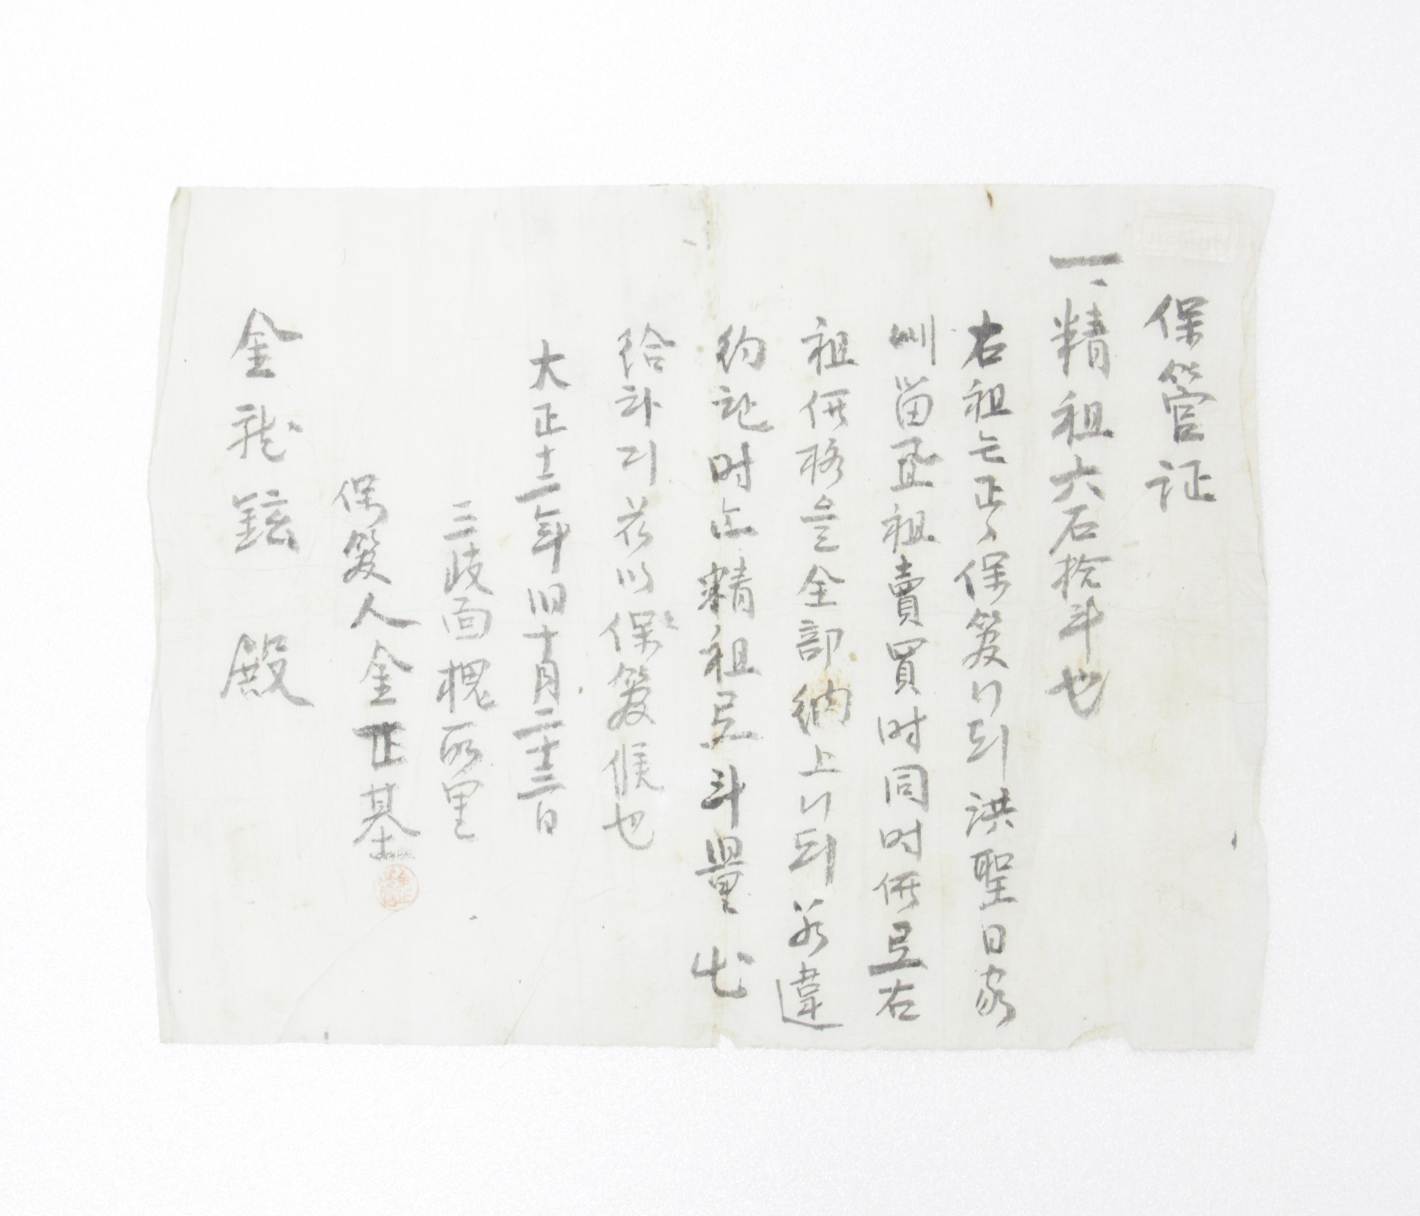 保管证
一、精租六石拾斗也
右租는正히保管이되洪聖日家
에留正租賣買時同時价로右
租価格을全部納上이되若違
約记时는精租로斗量出
给하기玆以保管候也
大正十二年旧十月二十三日
三歧面槐所里
保管人金正基
金龍鉉殿